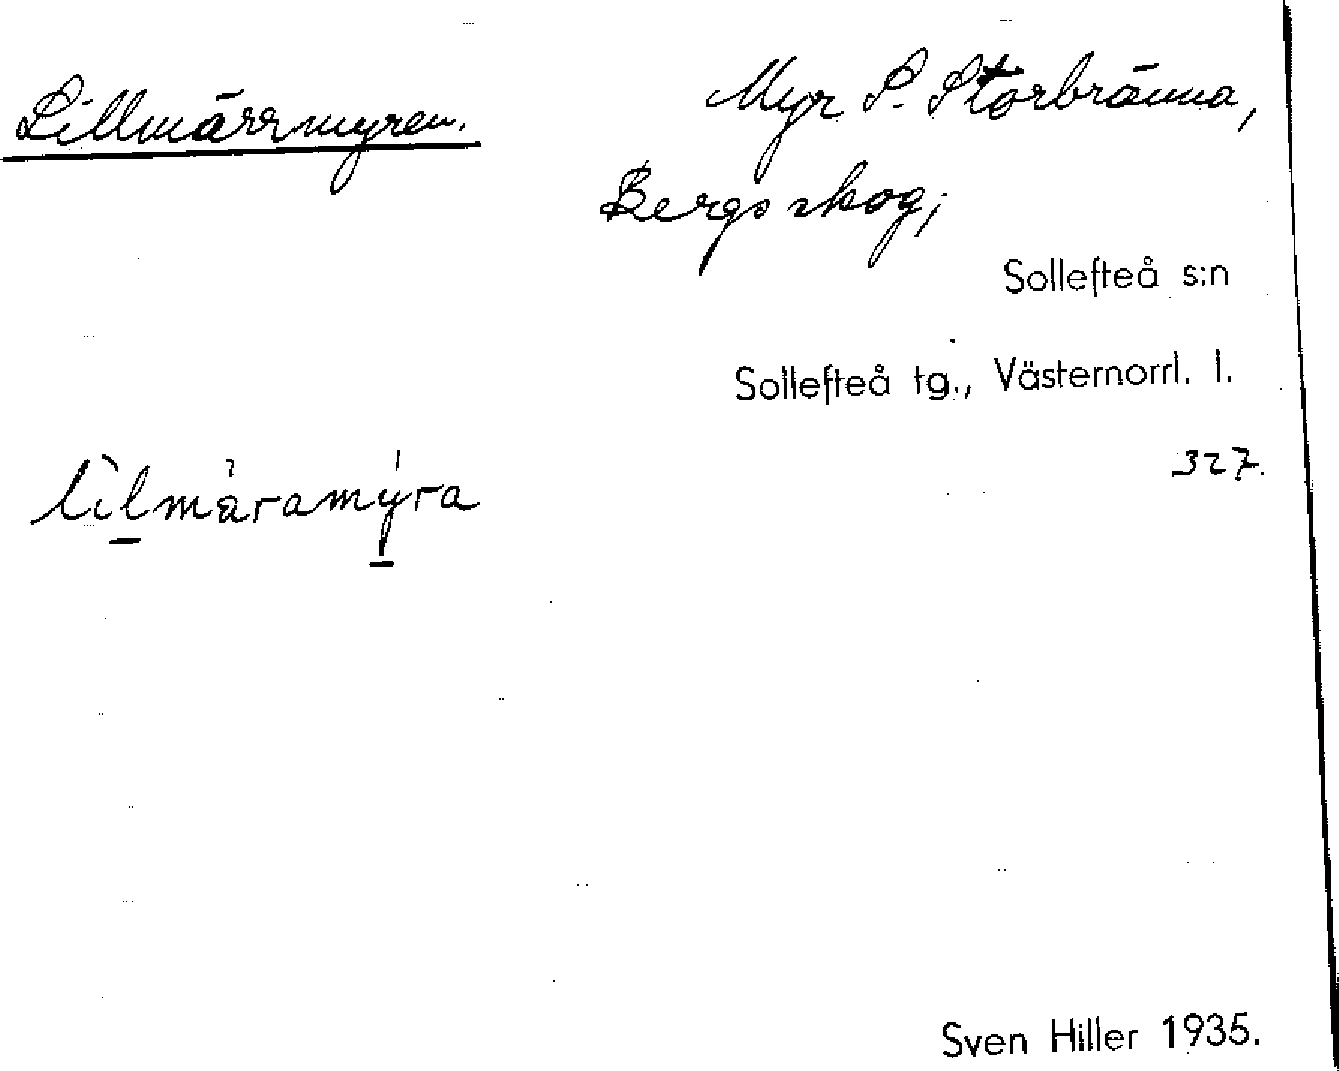 Lillmärrmyren.
Myr S. Storbränna,
Bergs skog,
Sollefteå s:n
Sollefteå tg., Västernorrl. l.
327.
lilmäramyra
Sven Hiller 1935.